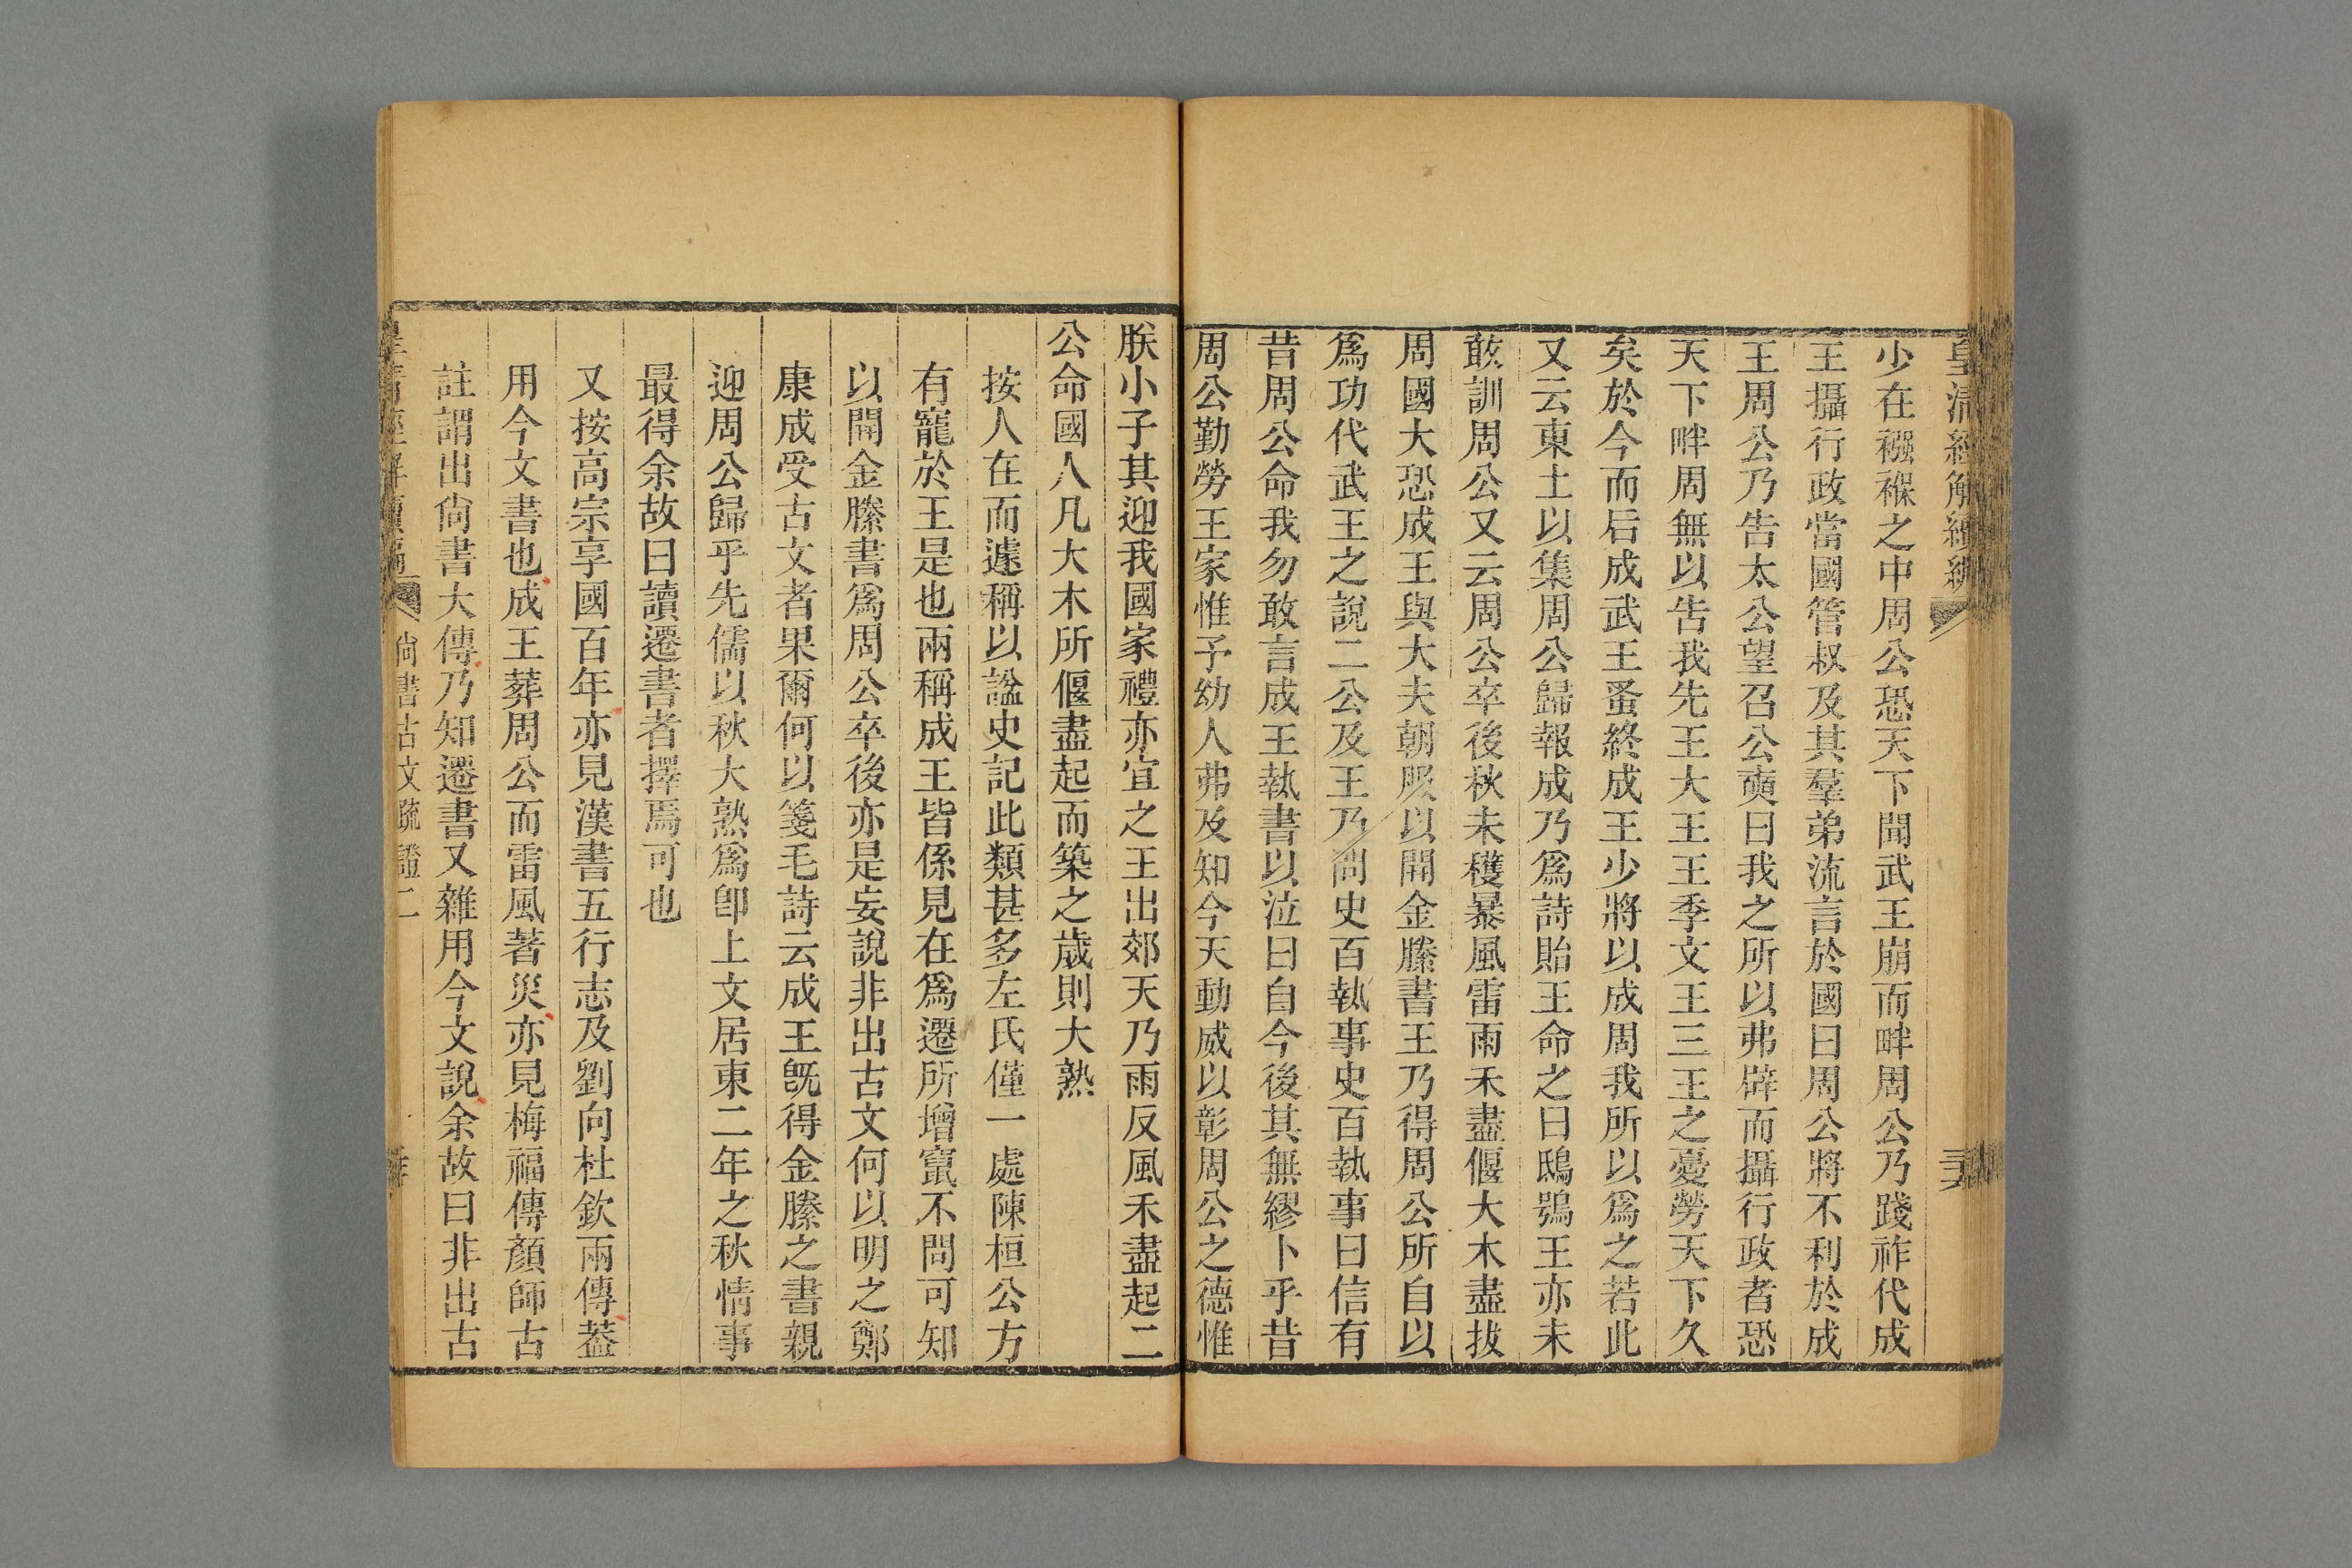 皇清經解續編
少在襁褓之中周公恐天下聞武王崩而畔周公乃踐祚代成
王攝行政當國管叔及其羣弟流言於國曰周公將不利於成
王周公乃告太公望召公奭曰我之所以弗辟而攝行政者恐
天下畔周無以告我先王大王王季文王三王之憂勞天下久
矣於今而后成武王蚤終成王少將以成周我所以爲之若此
又云東土以集周公歸報成乃爲詩貽王命之曰鴟鴞王亦未
敢訓周公又云周公卒後秋未穫暴風雷雨禾盡偃大木盡拔
周國大恐成王與大夫朝服以開金縢書王乃得周公所自以
爲功代武王之說二公及王乃問史百執事史百執事曰信有
昔周公命我勿敢言成王執書以泣曰自今後其無繆卜乎昔
周公勤勞王家惟予幼人弗及知今天動威以彰周公之德惟
朕小子其迎我國家禮亦宜之王出郊天乃雨反風禾盡起二
公命國人凡大木所偃盡起而築之歲則大熟
按人在而遽稱以諡史記此類甚多左氏僅一處陳桓公方
有寵於王是也兩稱成王皆係見在爲遷所增竄不問可知
以開金縢書爲周公卒後亦是妄說非出古文何以明之鄭
康成受古文者果爾何以箋毛詩云成王旣得金縢之書親
迎周公歸乎先儒以秋大熟爲卽上文居東二年之秋情事
最得余故曰讀遷書者擇焉可也
又按高宗享國百年亦見漢書五行志及劉向杜欽兩傳葢
用今文書也成王葬周公而雷風著災亦見梅福傳顏師古
註謂出尙書大傳乃知遷書又雜用今文說余故曰非出古
皇清經解續編 尙書古文疏證二